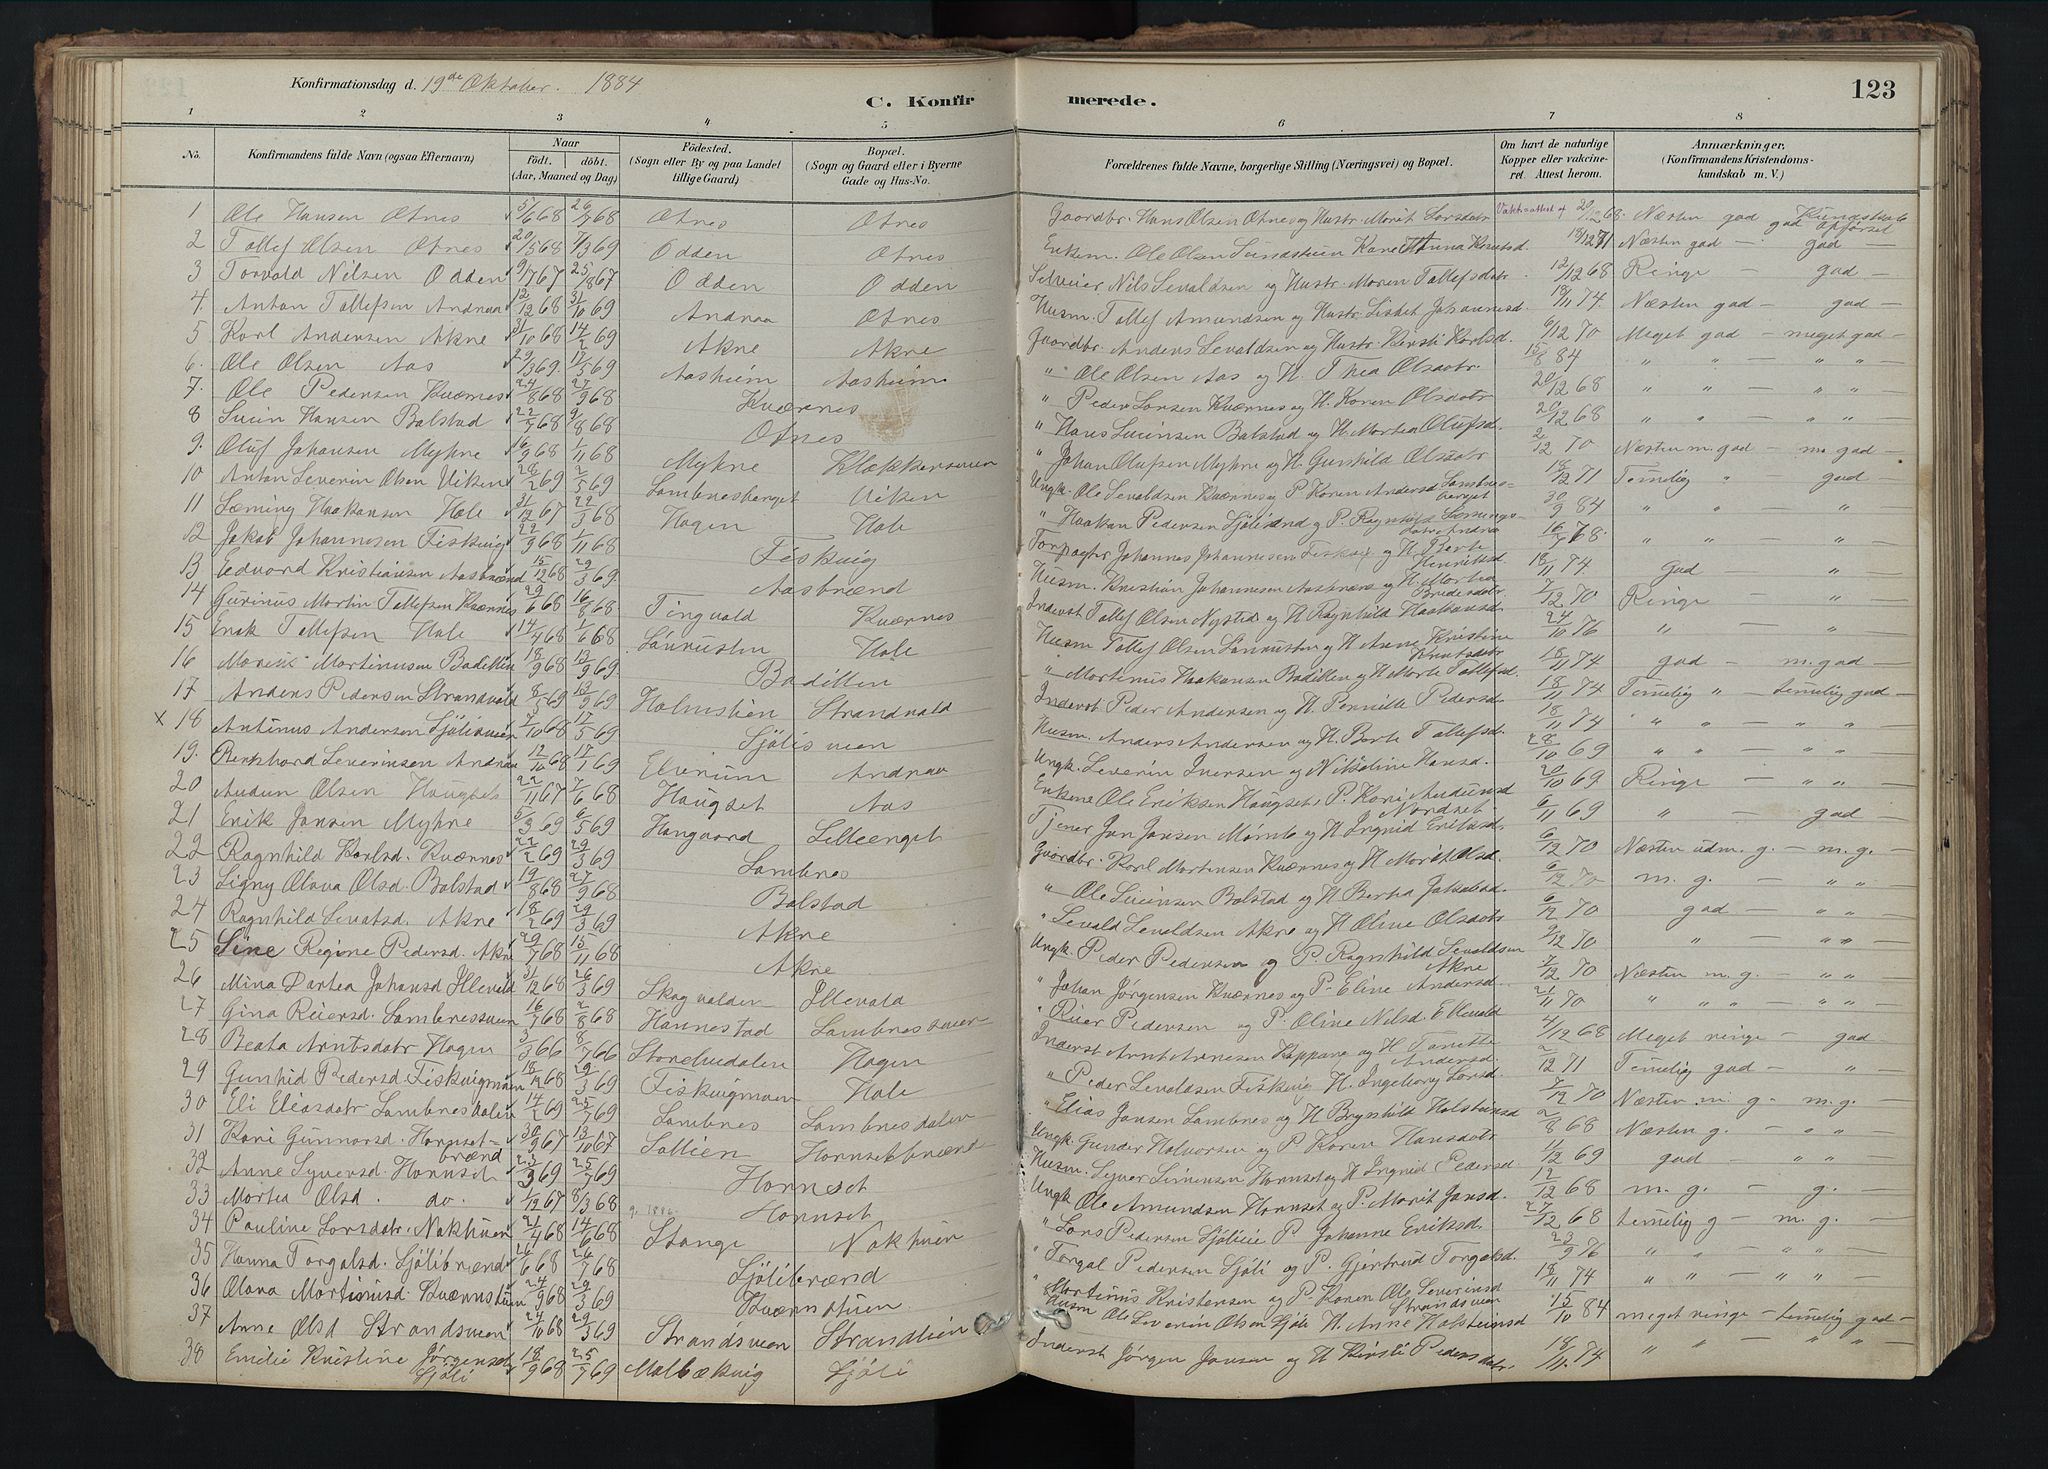 Konfirmationsdag d. 19de Oktober. 1884
C. Konfirmerede. 123
1 2 3 4 5 6 7 8
No. Konfirmandens fulde Navn (ogsaa Efternavn) Naar født. døbt. (Aar, Maaned og Dag) Fødested. (Sogn eller By og paa Landet tillige Gaard) Bopæl. (Sogn og Gaard eller i Byerne Gade og Hus-No. Forældrenes fulde Navne, borgerlige Stilling (Næringsvei) og Bopæl. Om havt de naturlige Kopper eller vakcineret. Attest herom. Anmærkninger, (Konfirmandens Kristendomskundskab m. V.)
1 Ole Hansen Otnes 5/6 68 26/7 68 Otnes Otnes Gaardbr. Hans Olsen Otnes og Hustr. Marit Larsdatr 20/12 68 Næsten god Kundskab god Opførsel
2 Tollef Olsen Otnes 20/5 68 7/3 69 Odden Otnes Enkem. Ole Olsen Kone Anna Knutsd. 18/12 71 Næsten god — god —
3 Torvald Nilsen Odden 9/7 67 25/8 67 Odden Odden Selveier Nils Sevaldsen og Hustr. Maren Tollefsdatr 12/12 68 Ringe — god —
4. Anton Tollefsen Andraa 12/12 68 31/10 69 Andraa Otnes Husm. Tollef Amundsen og Hustr. Lisbet Johannesd. 18/11 74. Næsten god — god —
5 Karl Andersen Akne 31/10 68 14/2 69 Akne Akne Gaardbr. Anders Sevaldsen og Hustr. Kersti Karlsd. 6/12 70 Meget god — meget god —
6. Ole Olsen Aas 29/3 69. 17/5 69 Aasheim Aasheim " Ole Olsen Aas og H. Thea Olsdatr. 15/8 84 " " — " "
7. Ole Pedersen Kværnes 24/8 68 27/9 68 Kværnes " Peder Larsen Kværnes og H. Karen Olsdatr 20/12 68 " " — " "
8 Svein Hansen Bolstad 22/7 68 9/8 68 Otnes " Hans Sveinsen Bolstad og H. Martea Olufsd. 20/12 68 " " — " "
9. Oluf Johansen Myhre 16/9 68 1/11 68 Myhre Klokkersveen " Johan Olufsen Myhre og H. Gunhild Olsdatr 2/12 70 Næsten m. god — m. god —
10 Anton Severin Olsen Viken 28/2 69 2/5 69 Sambnesberget Viken Ungk. Ole Sevaldsen Kværnes og P. Karen Andersd Sambnesberget 18/12 71 Temelig " god —
11 Læming Haakansen Hole 31/12 67 22/3 68 Hagen Hole " Haakan Pedersen og P. Ragnhild 30/9 84 " " — " —
12 Jakob Johannesen Fiskvig 22/9 68 1/11 68 Fiskvig Forpagter Johannes Johannesen Fiskvig og H. Berte Henriksd 16/7 78. " " — " —
13 Edvard Kristiansen Aasbrænd 15/12 68 29/3 69. Aasbrænd Husm. Kristian Johannesen Aasbrænd og H. Martea 18/11 74 god — " —
14 Gurinus Martin Tollefsen Kværnes 29/6 68 16/8 68 Tingvold Kværnes Inderst Tollef Olsen Nysted og H. Ragnhild Haakansd 7/12 70 Ringe — " —
15 Erik Tollefsen Hole 14/4 68 1/6 68 Hole Husm Tollef Olsen og H. Anne Kristine Knutsdatr 24/10 76 " — " —
16 Marius Martinusen Badillen 18/9 68 13/9 69. Badillen " Martinus Haakansen Badillen og H. Marte Tollefsd. 18/11 74 god — m. god —
17 Anders Pedersen Strandvold 8/5 69 13/9 69 Holmstien Strandvold Inderst. Peder Andersen og H. Pernille Pedersd. 18/11 74 Temelig " — temelig god —
x 18 Antinus Andersen Sjølisveen 7/10 68 17/5 69 Sjølisveen Husm. Anders Andersen og H. Berte Tollefsd. 18/11 74 " " — " " —
19. Bernhard Severinsen Andraa 12/10 68 17/1 69 Elverum Andraa Ungk. Severin Iversen og Nilsoline Hansd. 28/10 69 " " — " " —
20 Audun Olsen Haugset 22/11 67 7/6 68 Haugset Aas Enkem Ole Eriksen Haugset, P. Kari Audunsd Nordset 20/10 69 Ringe — " " —
21 Erik Jansen Myhre 5/3 69 6/5 69 Haugaard Lilleenget Tjener Jan Jansen og H. Ingrid Eriksd. 6/11 69 " — god —
22 Ragnhild Karlsd. Kværnes 22/2 69 29/3 69 Sambnes Gaardbr. Karl Martensen Kværnes og H. Marit Olsd. 6/12 70 Næsten udm. g. — m. g. —
23 Signy Olava Olsd. Bolstad 19/8 68 27/9 68 Bolstad " Ole Sveinsen Bolstad og H Berta Jakobsd. 6/12 70 m. g. — " " —
24 Ragnhild Sevalsd. Akne 18/2 69 29/3 69 Akne " Sevald Sevaldsen Akne og H Oline Olsdatr 6/12 70 god — " " —
25 Sine Regine Pedersd. Akne 29/7 68 15/11 68 Akne Ungk. Peder Pedersen og P. Ragnhild Sevaldsen Akne 9/12 70 " — " " —
26 Mina Dartea Johansd Illevold 31/12 68 26/3 69 Skogvolden Illevold " Johan Jørgensen Kværnes og P. Eline Andersd. 7/12 70 Næsten m. g. — " " —
27 Gina Reiersd. Sambnessveen 16/7 68 2/8 68 Hannestad Sambnessveen " Reier Pedersen og P. Oline Nilsd. 21/11 70 " " " — " " —
28 Beata Arntsdatr Hagen 3/3 66 8/7 66 Storelvedalen Hagen Inderst Arnt Arnesen Koppang og H Tonette Andersd. 4/12 68 Meget ringe — god
29 Gunhid Pedersd. Fiskvigmoen 18/12 68 29/3 69 Fiskvigmoen Hole " Peder Sevaldsen Fiskvig H. Ingeborg Larsd. 2/12 71 Temelig god — " —
30 Eli Eliasdatr Sambnesdalen 14/2 69 25/7 69 Sambnes Sambnesdalen " Elias Jansen Sambnes og H Brynhild Halsteinsd 7/12 70 Næsten m. g. — m. g. —
31 Kari Gunnarsd. Hornsetbrænd 30/9 67 13/10 67 Sollien Hornsetbrænd Ungk. Gunder Halvorsen og P. Karen Hansdatr 2/8 68 Næsten g. — " " —
32 Anne Syversd. Hornset 23/3 69 25/7 69 Hornset Husm. Syver Simensen Hornset og H Ingrid Pedersd. 1/12 69 god — " " —
33 Martea Olsd. do. 1/12 67 8/3 68 Hornset Ungk Ole Amundsen Hornset og P. Marit Jansd. 12/12 68 m. g. — g. —
34 Pauline Larsdatr. Nokhuen 21/4 68 14/6 68 Stange Nokhuen " Lars Pedersen Sjølie P Johanne Eriksd. 27/12 68 temelig g — m. g. —
35 Hanna Torgalsd. Sjølibrænd 26/6 68 26/7 68 Sjølibrænd " Torgal Pedersen Sjøli og P. Gjertrud Torgalsd. 23/9 76 " " — " " —
36 Olava Martinusd. Kværnstuen 24/9 68 29/3 69 Kværnstuen. " Martinus Kristensen og P. Karen Ole Severinsd Strandsveen 18/11 74 " " — " " —
37 Anne Olsd Strandsveen 24/10 68 29/3 69 Strandsveen Strandlien Husm Ole Severin Olsen Sjøli H. Anne Halsteinsd 15/10 84 meget ringe — temelig god —
38 Emilie Kristine Jørgensd. Sjøli 18/9 68 25/7 69 Malbækvig Sjøli Inderst Jørgen Jansen og H Kirsti Pedersdatr. 18/11. 74 " " — " " —